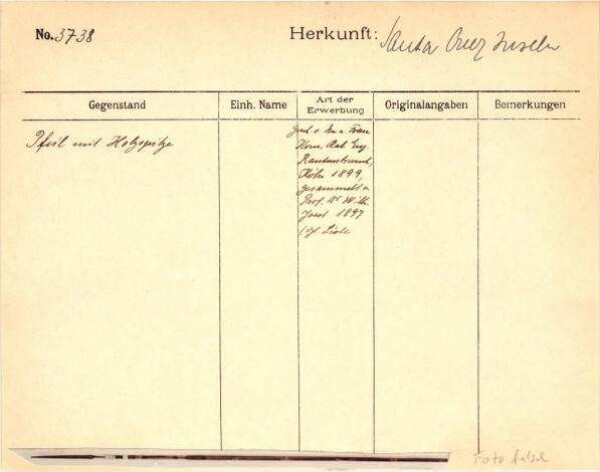 No. 3738
Herkunft: Santa Cruz Inseln
Gegenstand
Einh. Name
Art der
Erwerbung
Originalangaben
Bemerkungen
Pfeil mit Holzspitze
Gesch. v. Frau
Eug.
Rautenstrauch,
Köln 1899,
gesammelt v.
Prof. Dr Wilh.
Joest 1897
cf. Liste
Foto